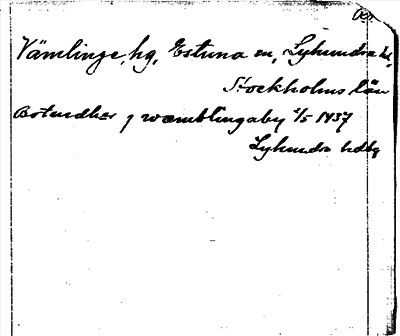 Vämlinge, hg, Estuna sn, Lyhundra hd,
Stockholms län
Östendher j wæmblingaby 2/5 1437
Lyhundra hdbg